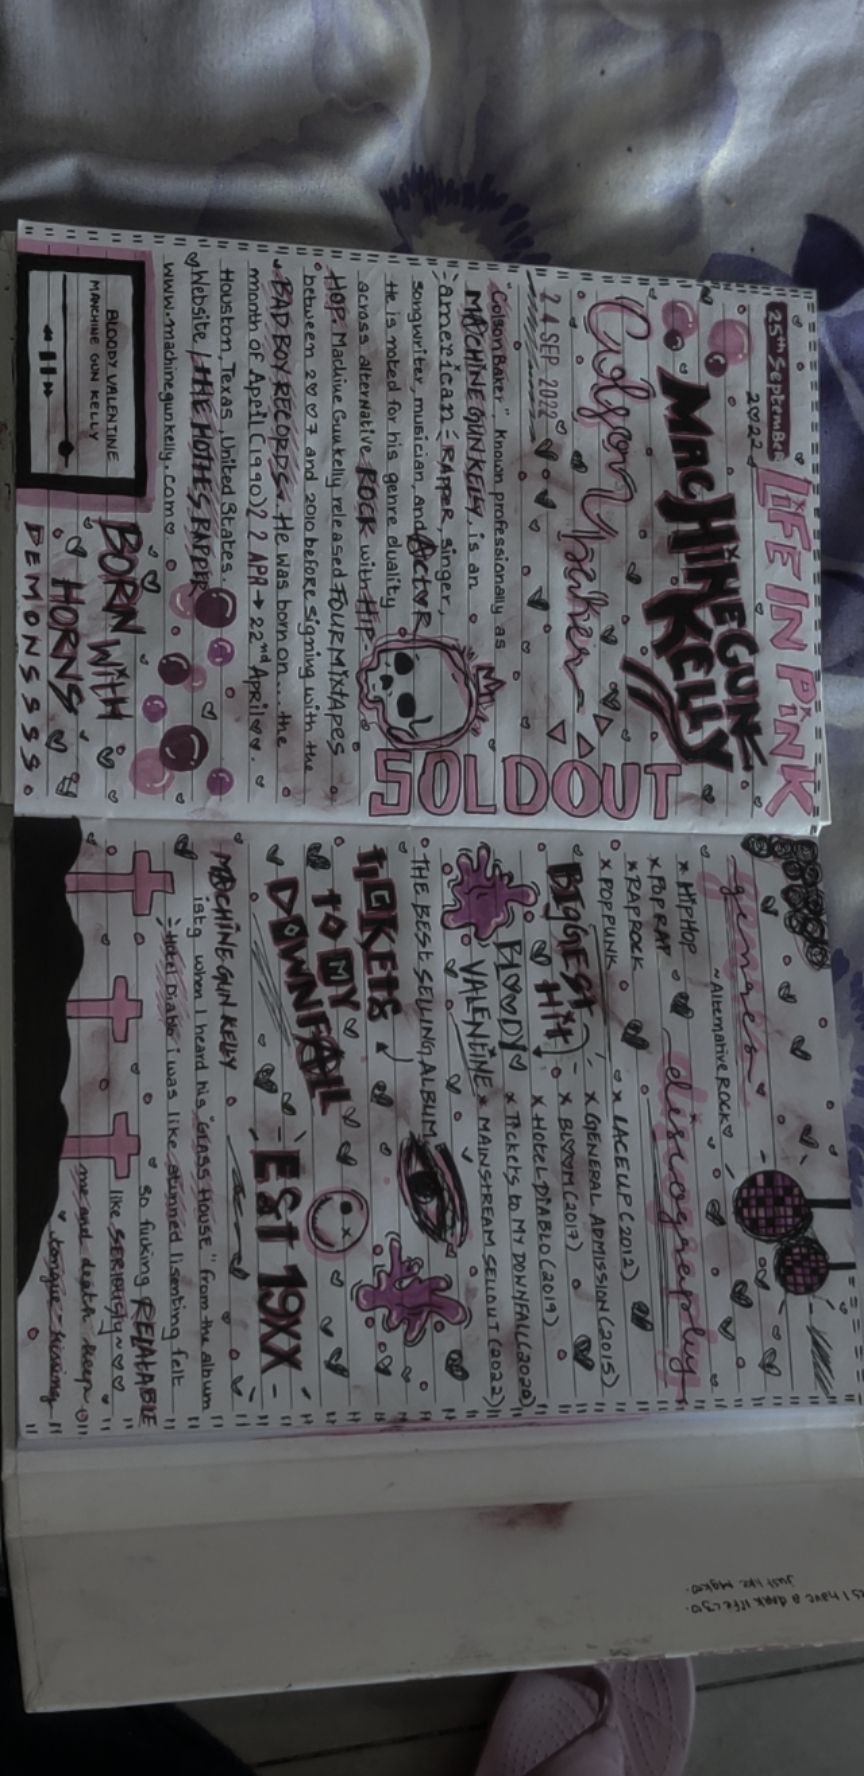 25th September
2022
LiFE IN PiNK
MACHiNEGUN
KELLY
Colson
baker
SOLDOUT
24 SEP 2022
"Colson Baker", Known professionally as
MACHiNE GUN KELLY, is an
american RAppeR, singer,
songwriter, musician, and ActoR
He is noted for his genre duality
across alterNative ROCK with HIP-
HOP. Machine Gunkelly released FOURMiXtAPES
between 2007 and 2010 before signing with the
BAD BOY RECORDS. He was born on... the
month of April (1990) 22 APR → 22nd April
Houston, Texas, United States.
Website / tHE HOttES RAPPER
www.machinegunkelly.com
BLOODY VALENTINE
MANCHINE GUN KELLY
BORN WitH
HORNS
DEMONSSSS
genres
~Alternative ROCK
x HIPHOP
x POP RAP
x RAPROCK
x POPPUNK
discography
x LACEUP (2012)
x GENERAL ADMISSION (2015)
x BLOOM (2017)
x HOtEL DiABLO (2019)
x Tickets to MY DOWNFALL (2020)
x MAINStREAM SELLOUT (2022)
BIGGESt
Hit
BLOODY
VALENtiNE
THE BESt SELLING ALBUM
tiCKEtS
tO MY
DOWNFALL
ESt 19XX
MACHiNE GUN KELLY
istg when I heard his "GLASS HOUSE" from the album
Hotel Diablo i was like stunned lisenting felt
so fucking RELAtABLE
like SERIOUSly~
me and death keep
tongue-kissing
I have a dark life
just like MgK